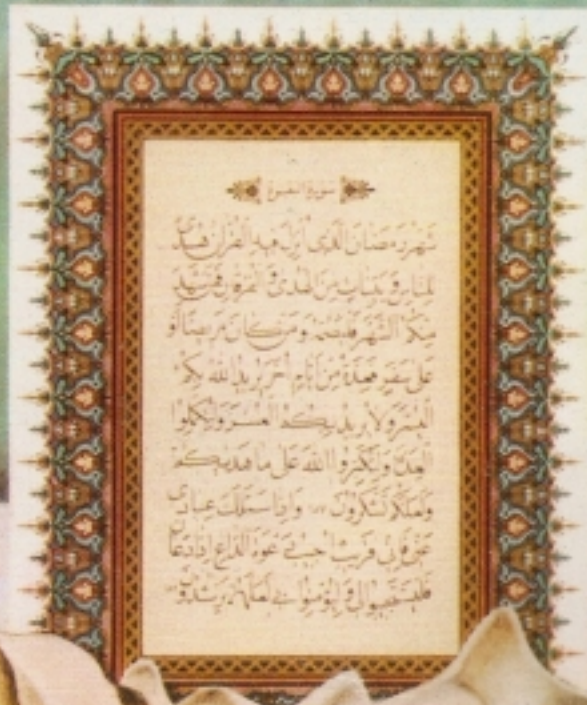 سورة البقرة
شهر رمضان الذى انزل فيه القران هدى
للناس و بينات من الهدى و الفرقان فمن شهد
منكم الشهر فليصمه و من كان مريضا او
على سفر فعدة من ايام اخر يريد الله بكم
اليسر ولا يريد بكم العسر ولتكملوا
العدة ولتكبروا الله على ما هديكم
ولعلكم تشكرون واذا سئلك عبادى
عنى فانى قريب اجيب دعوة الداع اذا دعان
فليستجيبوا لى وليؤمنوا بى لعلهم يرشدون